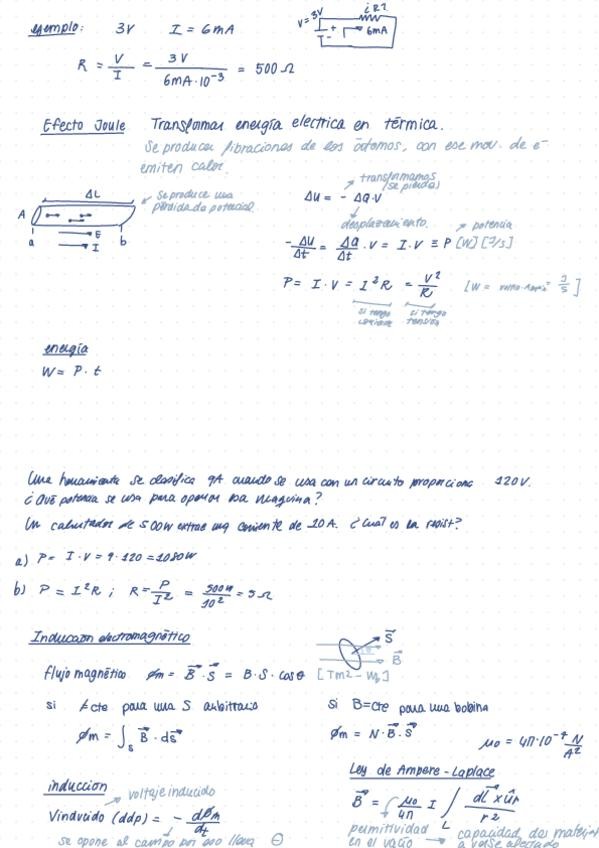 ejemplo: 3V I = 6mA
V=3V
iR?
+
-
6mA
R = V/I = 3V / 6mA·10⁻³ = 500 Ω
Efecto Joule Transformar energía electrica en térmica.
Se producen fibraciones de los átomos, con ese mov. de e⁻
emiten calor.
ΔL
Se produce una
pérdida de potencial.
A
a b
E
I
transformamos
(se pierde)
ΔU = - ΔQ·V
desplazamiento.
potencia
-ΔU/Δt = ΔQ/Δt · V = I·V ≡ P [W] [J/s]
P = I·V = I²R = V²/R [W = J/s]
si tengo
corriente
si tengo
tensión
energía
W = P·t
Una herramienta se clasifica 9A cuando se usa con un circuito proporciona 120V.
¿Qué potencia se usa para operar esa maquina?
Un calentador de 500W extrae una corriente de 10A. ¿Cuál es la resist?
a) P = I·V = 9·120 = 1080W
b) P = I²R ; R = P/I² = 500W/10² = 5 Ω
Inducción electromagnético
S⃗
B⃗
flujo magnético ϕm = B⃗·S⃗ = B·S·cosθ [Tm2 - Wb]
si ≠cte para una S arbitraria
si B=cte para una bobina
ϕm = ∫s B⃗·ds⃗
ϕm = N·B⃗·S⃗
μ₀ = 4π·10⁻⁷ N/A²
Ley de Ampere-Laplace
induccion
voltaje inducido
Vinducido (ddp) = - dϕm/dt
B⃗ = μ₀/4π I ∫L dL⃗ x ûr / r²
se opone al campo por eso lleva ⊖
permitividad
en el vacío
capacidad del material
a verse afectado